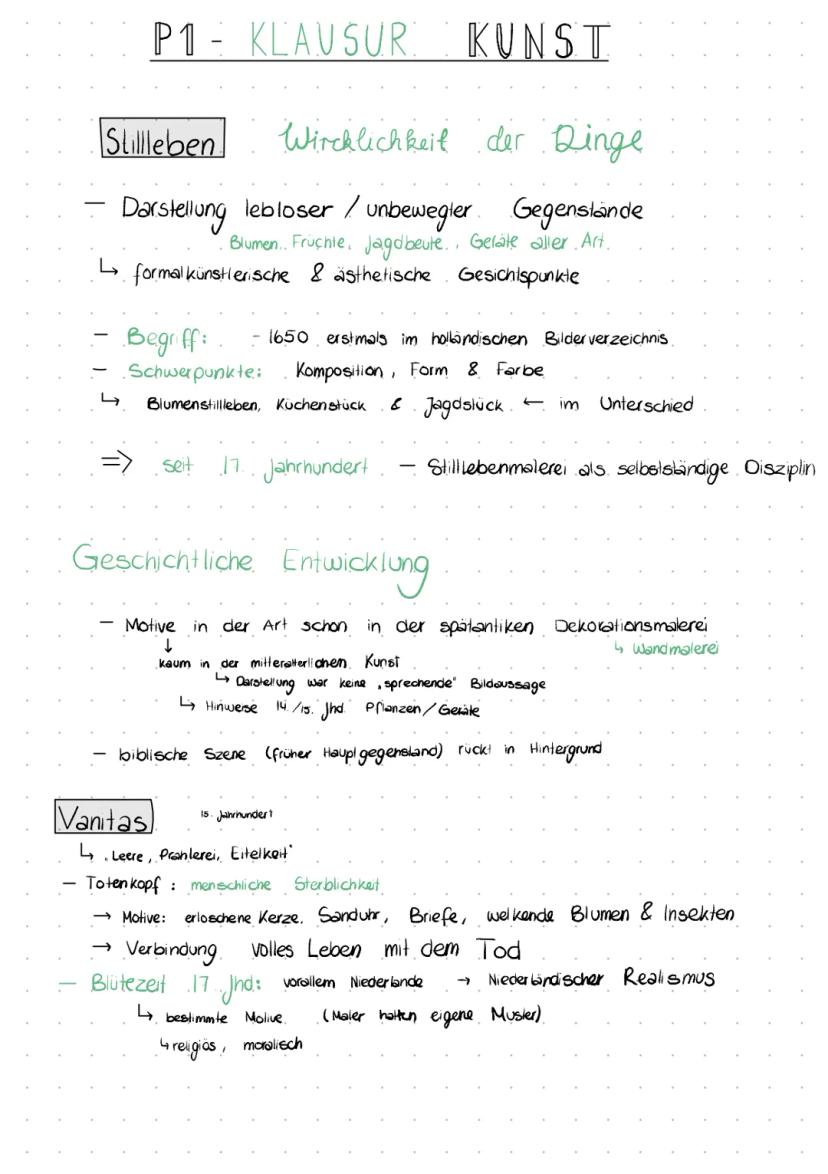 P1 - KLAUSUR KUNST
Stillleben Wircklichkeit der Dinge
— Darstellung lebloser / unbewegter Gegenstände
Blumen, Früchte, Jagdbeute, Geräte aller Art.
↳ formalkünstlerische & ästhetische Gesichtspunkte
— Begriff: - 1650 erstmals im holländischen Bilderverzeichnis
— Schwerpunkte: Komposition, Form & Farbe
↳ Blumenstillleben, Küchenstück & Jagdstück ← im Unterschied
=> seit 17. Jahrhundert — Stilllebenmalerei als selbstständige Disziplin
Geschichtliche Entwicklung
— Motive in der Art schon in der spätantiken Dekorationsmalerei
↓ ↳ Wandmalerei
kaum in der mittelalterlichen Kunst
↳ Darstellung war keine "sprechende" Bildaussage
↳ Hinweise 14./15. Jhd. Pflanzen/Geräte
— biblische Szene (früher Hauptgegenstand) rückt in Hintergrund
Vanitas 15. Jahrhundert
↳ "Leere, Prahlerei, Eitelkeit"
— Totenkopf: menschliche Sterblichkeit
→ Motive: erloschene Kerze, Sanduhr, Briefe, welkende Blumen & Insekten
→ Verbindung volles Leben mit dem Tod
— Blütezeit 17. Jhd: vorallem Niederlande → Niederländischer Realismus
↳ bestimmte Motive (Maler hatten eigene Muster)
↳ religiös, moralisch